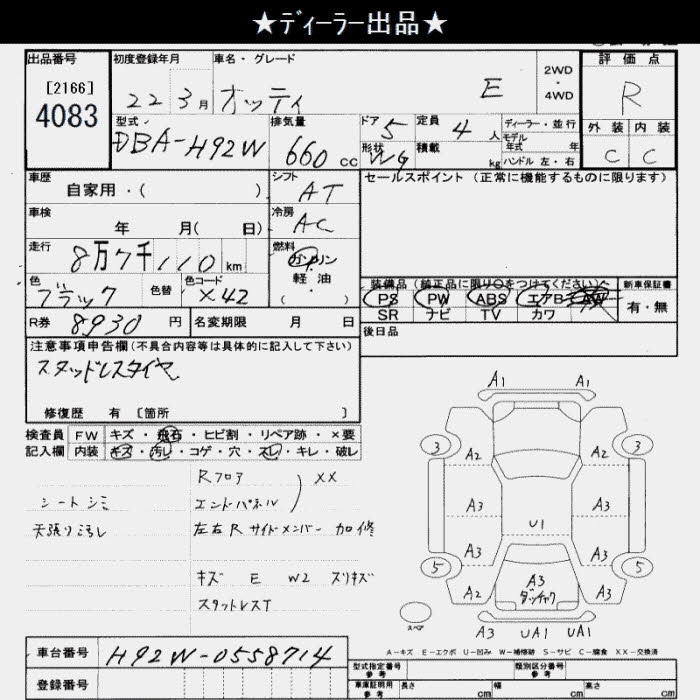 ★ディーラー出品★
出品番号 初度登録年月 車名・グレード 評価点
[2166]
4083
22 3月 オッティ E 2WD・4WD R
型式 排気量 ドア 定員 ディーラー・並行 外装 内装
DBA-H92W 660cc 5 4人 モデル年式 年 C C
形状 WG 積載 kg ハンドル 左・右
車歴 シフト セールスポイント (正常に機能するものに限ります)
自家用・( ) AT
車検 冷房
年 月( 日) AC
走行 燃料
8万7千110km ガソリン
軽油
( )
色 色替 色コード 装備品 (純正品に限り○をつけてください) 新車保証書
ブラック X42 PS PW ABS エアB AW 有・無
SR ナビ TV カワ
R券 8930円 名変期限 月 日 後日品
注意事項申告欄 (不具合内容等は具体的に記入して下さい)
スタッドレスタイヤ
修復歴 有 [箇所 ]
検査員 FW キズ・飛石・ヒビ割・リペア跡・×要
記入欄 内装 キズ・汚し・コゲ・穴・スレ・キレ・破レ
Rフロア XX
シートシミ エンドパネル
天張り汚レ 左右Rサイドメンバー 加修
キズ E W2 スリキズ
スタットレスT
A1 A1
3 A2 A2 3
A3 A3
U1
A3 A3
5 A3 5
A2 ダッチャク A2
スペア
A3 UA1 UA1
A-キズ E-エクボ U-凹み W-補修跡 S-サビ C-腐食 XX-交換済
車台番号 H92W-0558714
型式指定番号 参考 類別区分番号 参考
登録番号 車庫証明用 参考 長さ cm 幅 cm 高さ cm